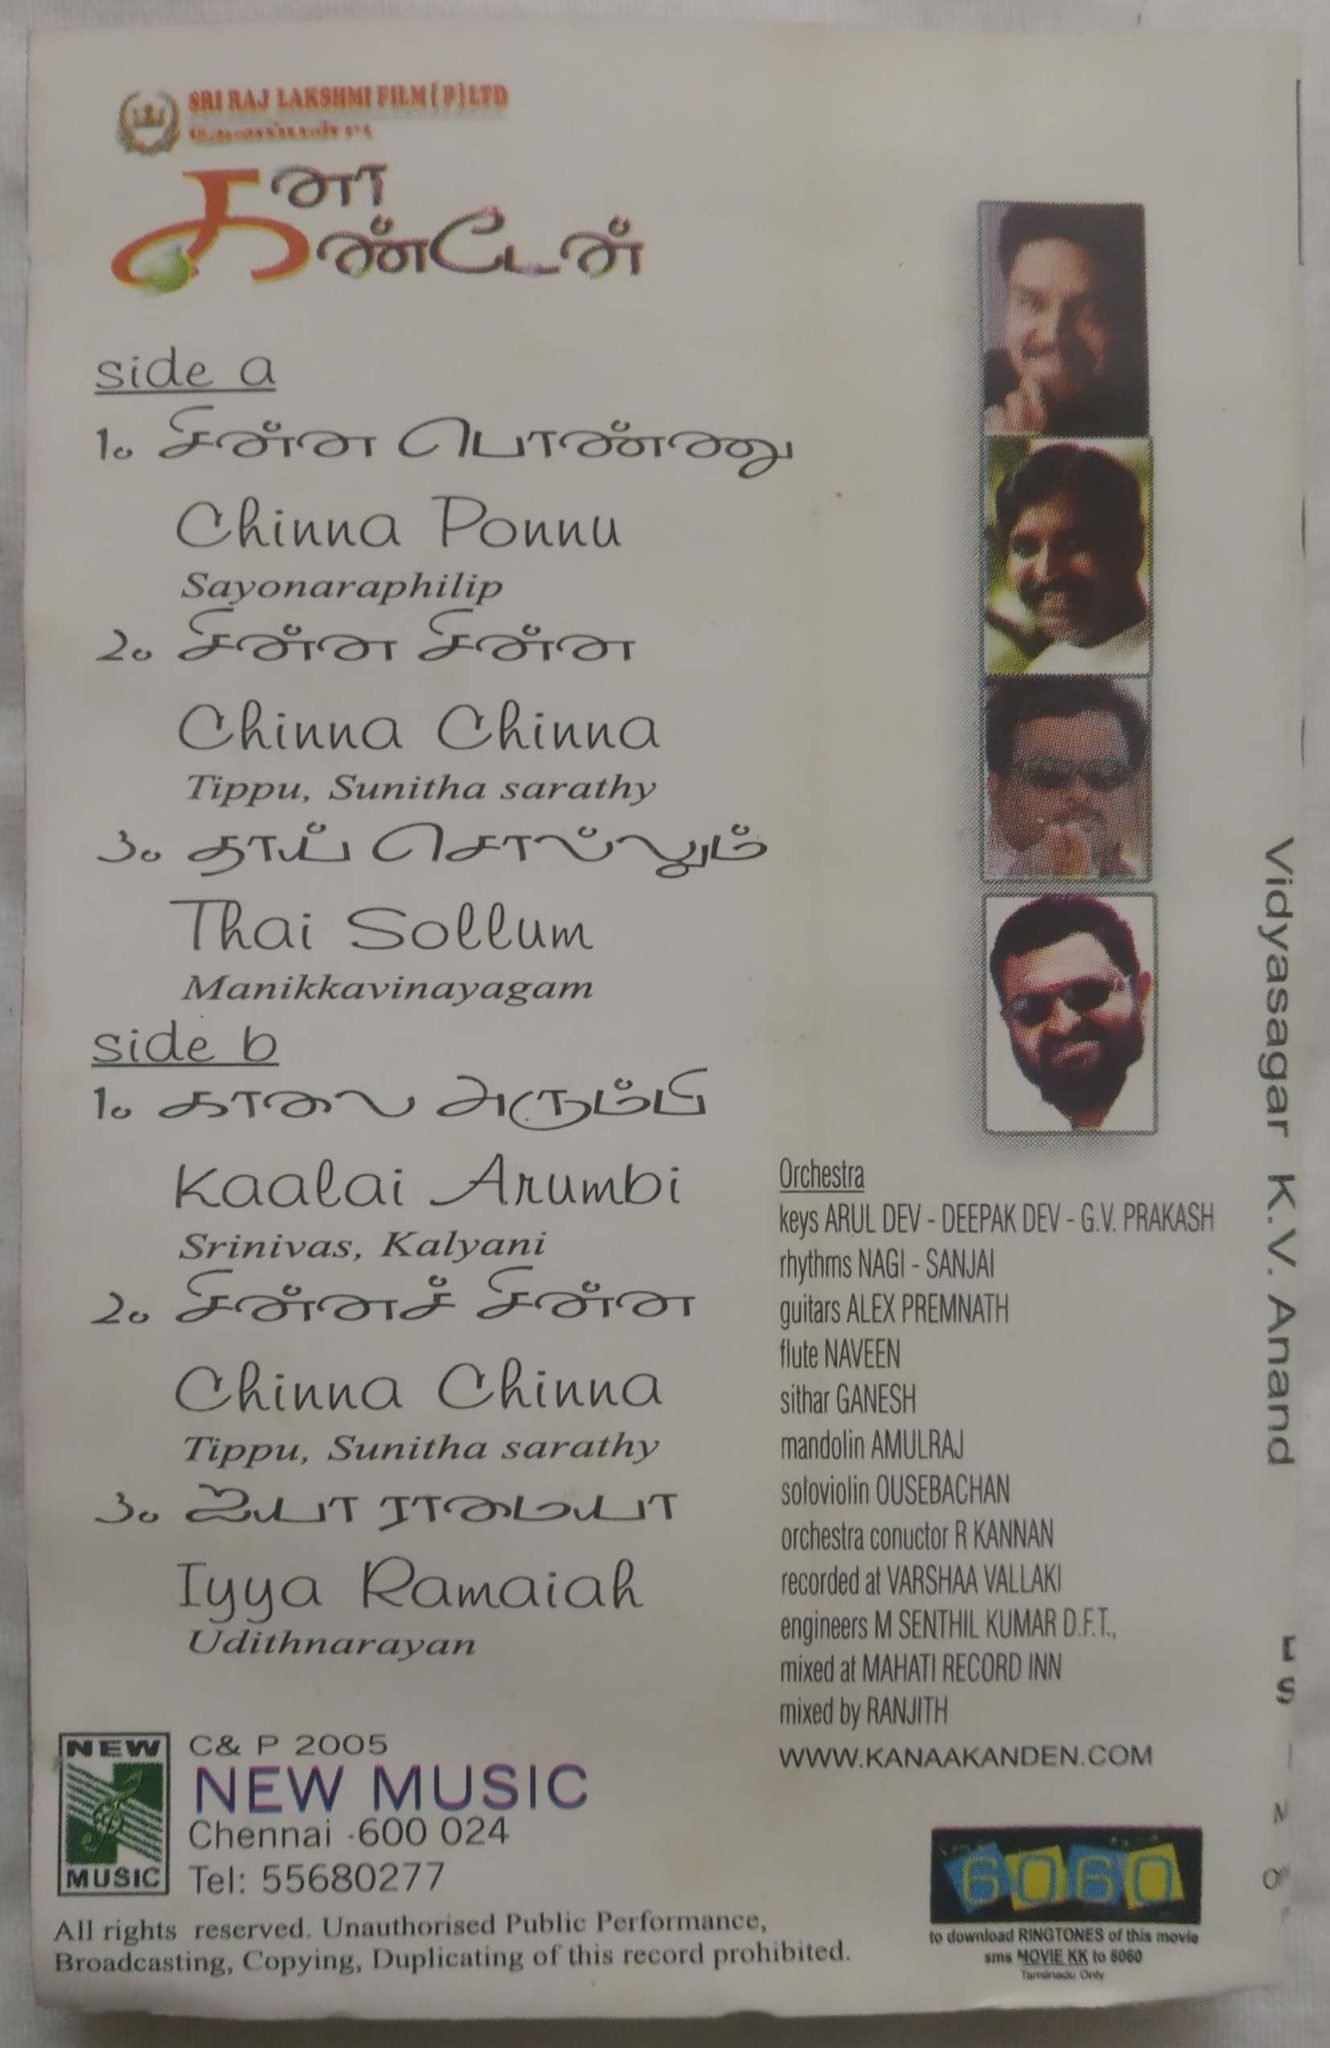 SRI RAJ LAKSHMI FILM (P) LTD
கனா
கண்டேன்
side a
1. சின்ன பொண்ணு
Chinna Ponnu
Sayonaraphilip
2. சின்ன சின்ன
Chinna Chinna
Tippu, Sunitha sarathy
3. தாய் சொல்லும்
Thai Sollum
Manikkavinayagam
side b
1. காலை அரும்பி
Kaalai Arumbi
Srinivas, Kalyani
2. சின்னச் சின்ன
Chinna Chinna
Tippu, Sunitha sarathy
3. ஐயா ராமையா
Iyya Ramaiah
Udithnarayan
Orchestra
keys ARUL DEV - DEEPAK DEV - G.V. PRAKASH
rhythms NAGI - SANJAI
guitars ALEX PREMNATH
flute NAVEEN
sithar GANESH
mandolin AMULRAJ
soloviolin OUSEBACHAN
orchestra conuctor R KANNAN
recorded at VARSHAA VALLAKI
engineers M SENTHIL KUMAR D.F.T.,
mixed at MAHATI RECORD INN
mixed by RANJITH
WWW.KANAAKANDEN.COM
NEW
MUSIC
C& P 2005
NEW MUSIC
Chennai -600 024
Tel: 55680277
All rights reserved. Unauthorised Public Performance,
Broadcasting, Copying, Duplicating of this record prohibited.
6060
to download RINGTONES of this movie
sms MOVIE KK to 6060
Tamilnadu Only
Vidyasagar K.V. Anand